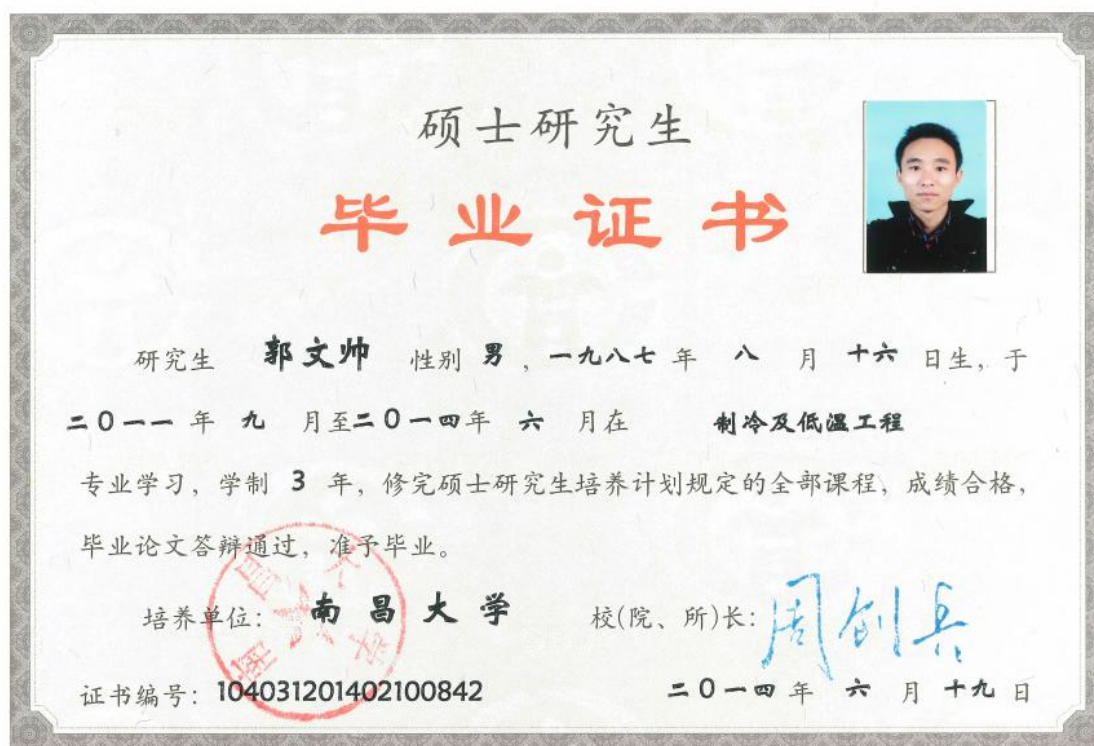 硕士研究生
毕业证书
研究生 郭文帅 性别 男，一九八七 年 八 月 十六 日生，于
二〇一一 年 九 月至二〇一四年 六 月在 制冷及低温工程
专业学习，学制 3 年，修完硕士研究生培养计划规定的全部课程，成绩合格，
毕业论文答辩通过，准予毕业。
培养单位：南昌大学 校(院、所)长：周创兵
南昌大学
证书编号：104031201402100842 二〇一四 年 六 月 十九 日